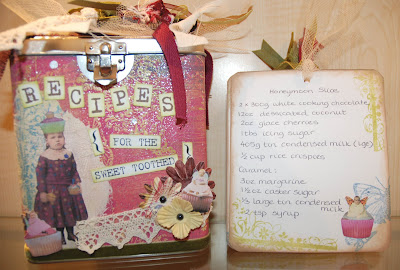 RECIPES
{ FOR THE }
SWEET TOOTHED
Honeymoon Slices
2 x 300g white cooking chocolate
12oz dessicated coconut
2oz glace cherries
1 tbs icing sugar
405g tin condensed milk (lge)
1/2 cup rice crispies
Caramel:
3oz margarine
1 1/2 oz caster sugar
large tin condensed
milk
2 tsp syrup